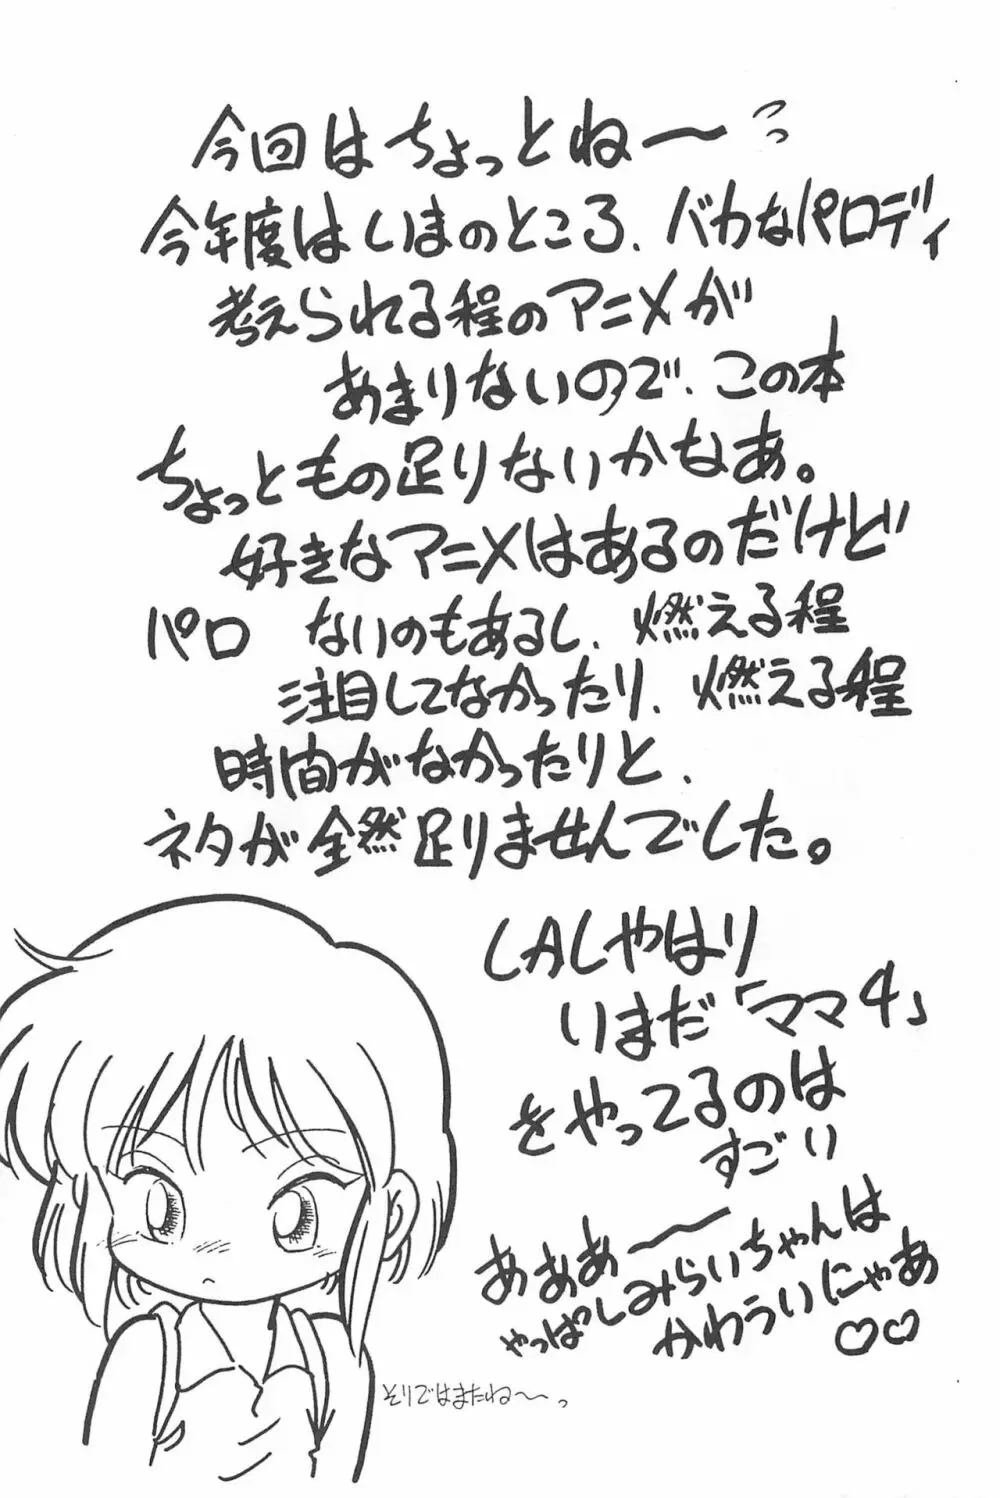 今回はちょっとね〜っっ
今年度はいまのところ、バカなパロディ
考えられる程のアニメが
あまりないので、この本
ちょっともの足りないかなあ。
好きなアニメはあるのだけど
パロ ないのもあるし、燃える程
注目してなかったり、燃える程
時間がなかったりと、
ネタが全然足りませんでした。
しかしやはり
いまだ「ママ4」
をやってるのは
すごい
あああ〜
やっぱしみらいちゃんは
かわういにゃあ
♡♡
そいではまたね〜っ